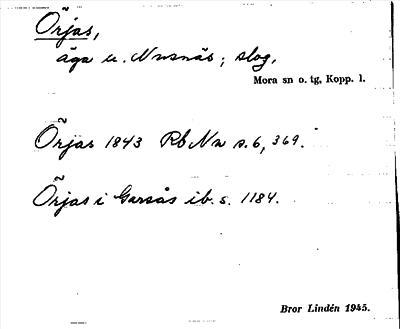 Örjas,
äga u. Nusnäs; skog,
Mora sn o. tg, Kopp. l.
Örjas 1843 Rb Nu s. 6, 369.
Örjas i Garsås ib. s. 1184.
Bror Lindén 1945.